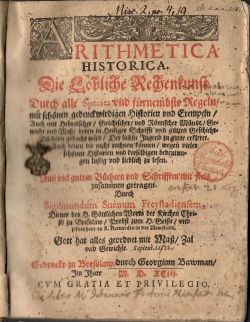 ARITHMETICA
HISTORICA.
Die Löbliche Rechenkunst.
Durch alle Species vnd fürnembste Regeln/
mit schönen gedenckwirdigen Historien vnd Exempeln/
Auch mit Hebraischer/ Griechischer/ vnd Römischer Müntze/ Ge-
wicht vnd Maß/ deren in Heiliger Schrifft vnd gutten Geschicht-
gedacht wird/ Der lieben Jugend zu gutte erkleret.
Auch denen die nicht rechnen können/ wegen vieler
schönen Historien vnd derselbigen bedeutun-
gen lustig vnd lieblich zu lesen.
Aus viel gutten Büchern vnd Schrifften mit fleis
zusammen getragen.
Durch
Sigismundum Sueuum Freystadiensem,
Diener des H. Göttlichen Worts der Kirchen Chri-
sti zu Breslaw/ Probst zum H. Geiste/ vnd
Pfarrherr zu S. Bernardin in der Newstadt.
Gott hat alles geordnet mit Maß/ Zal
vnd Gewichte. Sapient.
Gedruckt zu Breslaw/ durch Georgium Bawman/
Im Jhare M. D. XCIII.
CVM GRATIA ET PRIVILEGIO.